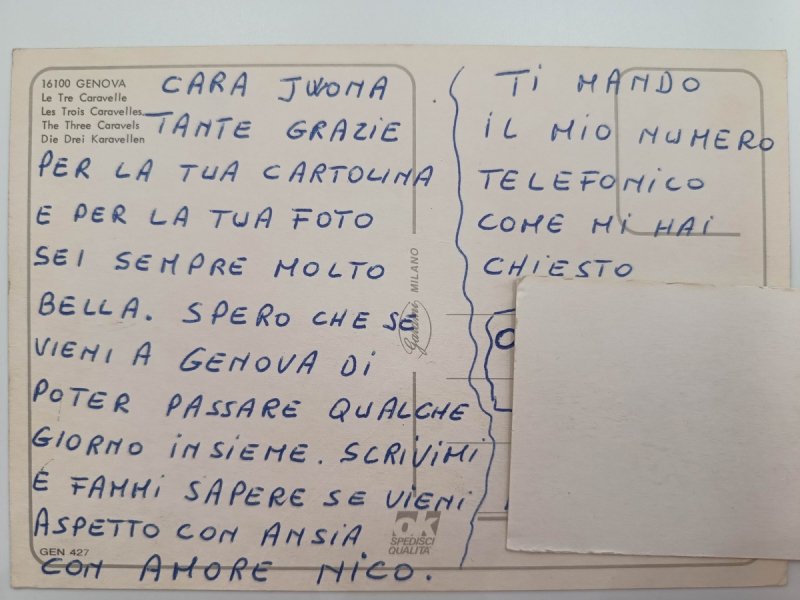 16100 GENOVA
Le Tre Caravelle
Les Trois Caravelles
The Three Caravels
Die Drei Karavellen
CARA JWONA
TANTE GRAZIE
PER LA TUA CARTOLINA
E PER LA TUA FOTO
SEI SEMPRE MOLTO
BELLA. SPERO CHE SE
VIENI A GENOVA DI
POTER PASSARE QUALCHE
GIORNO INSIEME. SCRIVIMI
E FAMMI SAPERE SE VIENI
ASPETTO CON ANSIA
CON AMORE NICO.
GEN 427
MILANO
ok
SPEDISCI
QUALITA'
TI MANDO
IL MIO NUMERO
TELEFONICO
COME MI HAI
CHIESTO